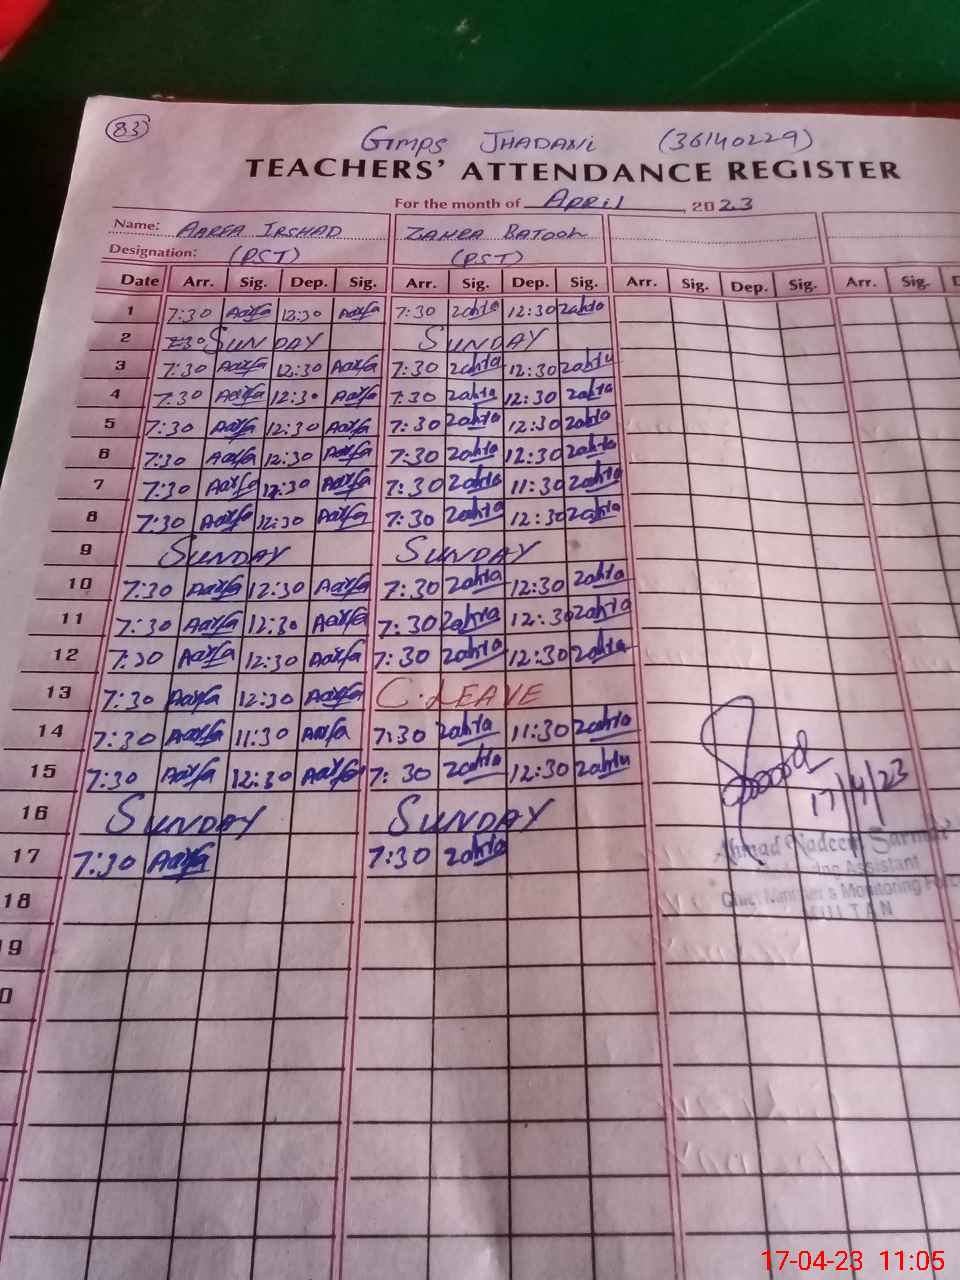 83
GIMPS JHADANI (36140229)
TEACHERS' ATTENDANCE REGISTER
For the month of April, 2023
Name: AARFA IRSHAD ZAHRA BATOOL
Designation: (PST) (PST)
Date Arr. Sig. Dep. Sig. Arr. Sig. Dep. Sig. Arr. Sig. Dep. Sig. Arr. Sig. D
1 7:30 Aarfa 12:30 Aarfa 7:30 Zahra 12:30 Zahra
2 SUNDAY SUNDAY
3 7:30 Aarfa 12:30 Aarfa 7:30 Zahra 12:30 Zahra
4 7:30 Aarfa 12:30 Aarfa 7:30 Zahra 12:30 Zahra
5 7:30 Aarfa 12:30 Aarfa 7:30 Zahra 12:30 Zahra
6 7:30 Aarfa 12:30 Aarfa 7:30 Zahra 12:30 Zahra
7 7:30 Aarfa 12:30 Aarfa 7:30 Zahra 11:30 Zahra
8 7:30 Aarfa 12:30 Aarfa 7:30 Zahra 12:30 Zahra
9 SUNDAY SUNDAY
10 7:30 Aarfa 12:30 Aarfa 7:30 Zahra 12:30 Zahra
11 7:30 Aarfa 12:30 Aarfa 7:30 Zahra 12:30 Zahra
12 7:30 Aarfa 12:30 Aarfa 7:30 Zahra 12:30 Zahra
13 7:30 Aarfa 12:30 Aarfa C.LEAVE
14 7:30 Aarfa 11:30 Aarfa 7:30 Zahra 11:30 Zahra
15 7:30 Aarfa 12:30 Aarfa 7:30 Zahra 12:30 Zahra
17/4/23
16 SUNDAY SUNDAY
Ahmad Nadeem
17 7:30 Aarfa 7:30 Zahra
Assistant
Chief Minister's Monitoring Force
MULTAN
18
9
0
17-04-23 11:05